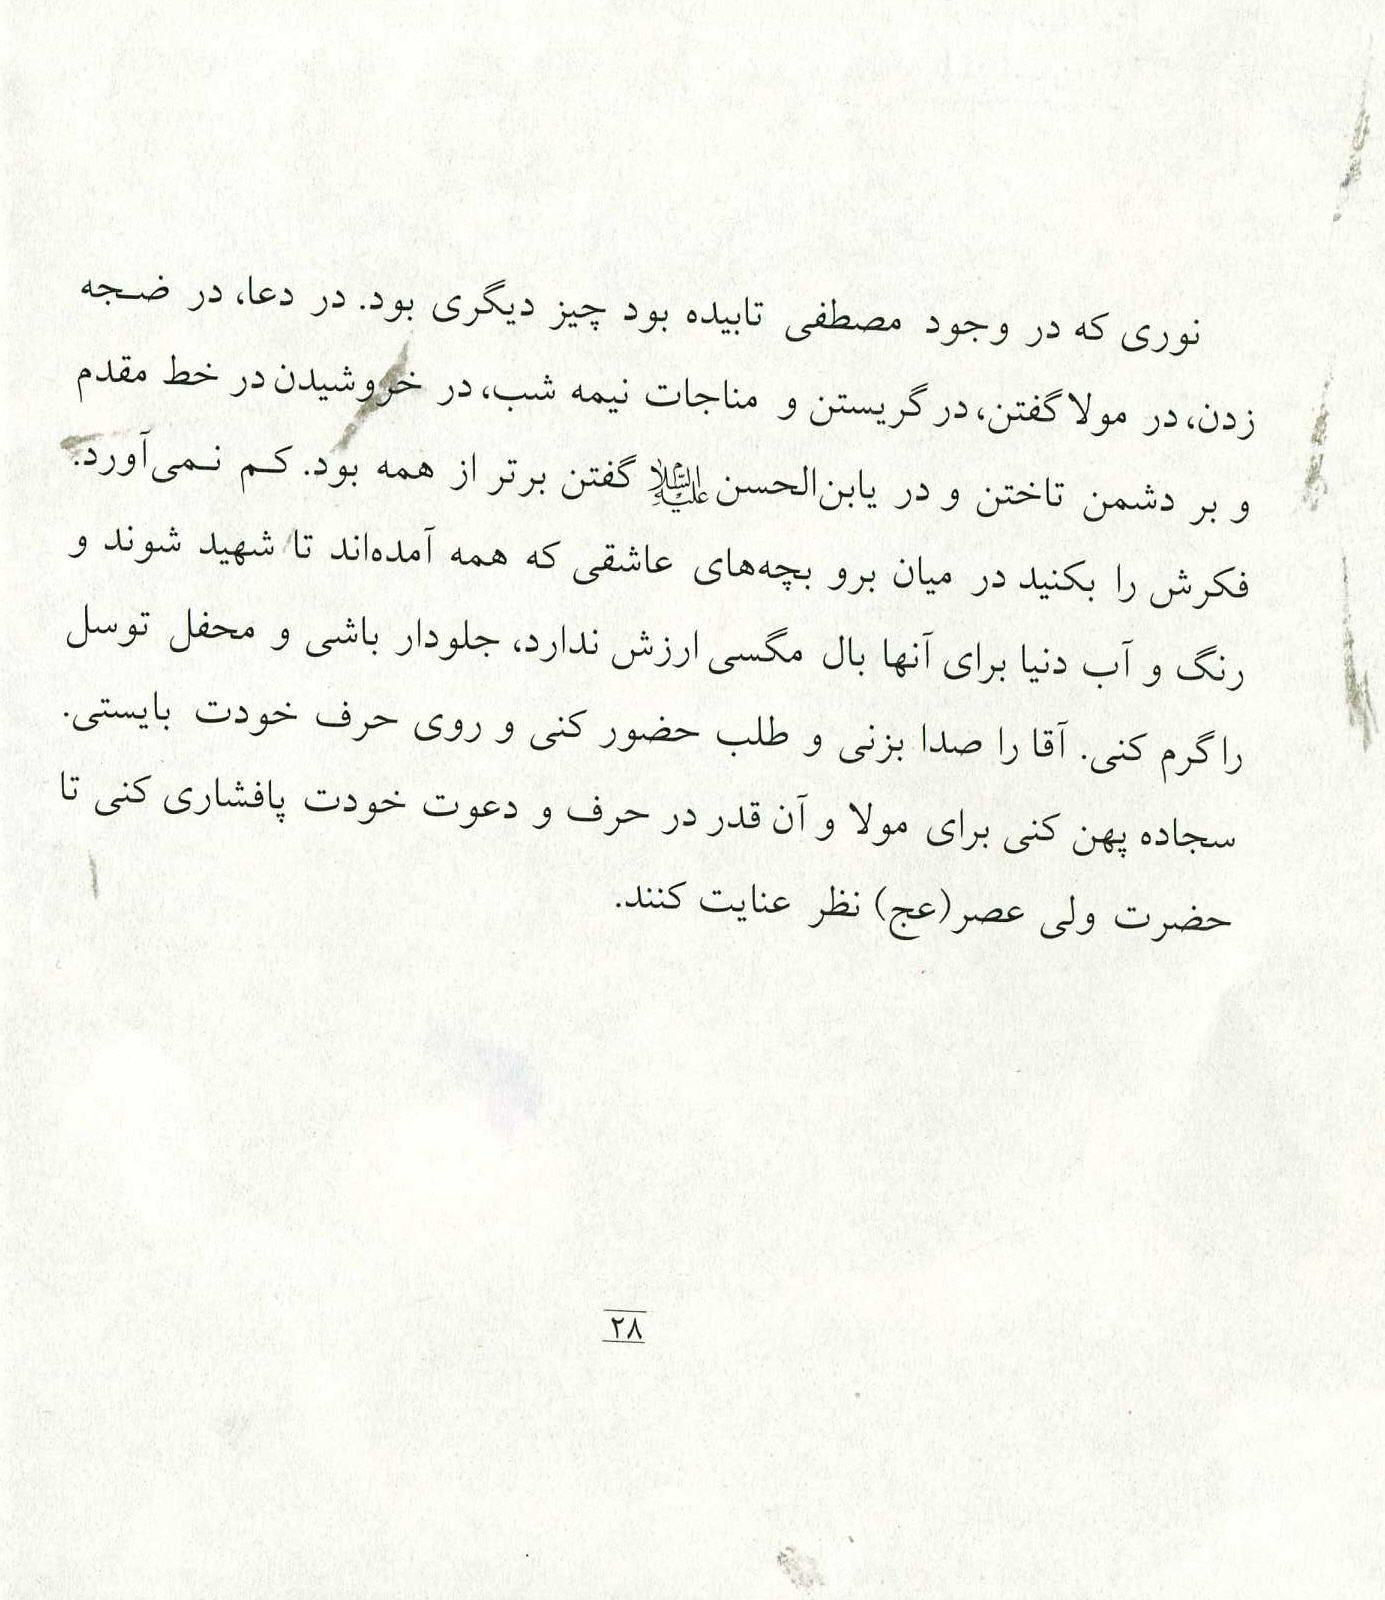 نوری که در وجود مصطفی تابیده بود چیز دیگری بود. در دعا، در ضجه
زدن، در مولا گفتن، در گریستن و مناجات نیمه شب، در خروشیدن در خط مقدم
و بر دشمن تاختن و در یابن‌الحسن علیه‌السلام گفتن برتر از همه بود. کم نمی‌آورد.
فکرش را بکنید در میان برو بچه‌های عاشقی که همه آمده‌اند تا شهید شوند و
رنگ و آب دنیا برای آنها بال مگسی ارزش ندارد، جلودار باشی و محفل توسل
را گرم کنی. آقا را صدا بزنی و طلب حضور کنی و روی حرف خودت بایستی.
سجاده پهن کنی برای مولا و آن قدر در حرف و دعوت خودت پافشاری کنی تا
حضرت ولی عصر(عج) نظر عنایت کنند.
۲۸